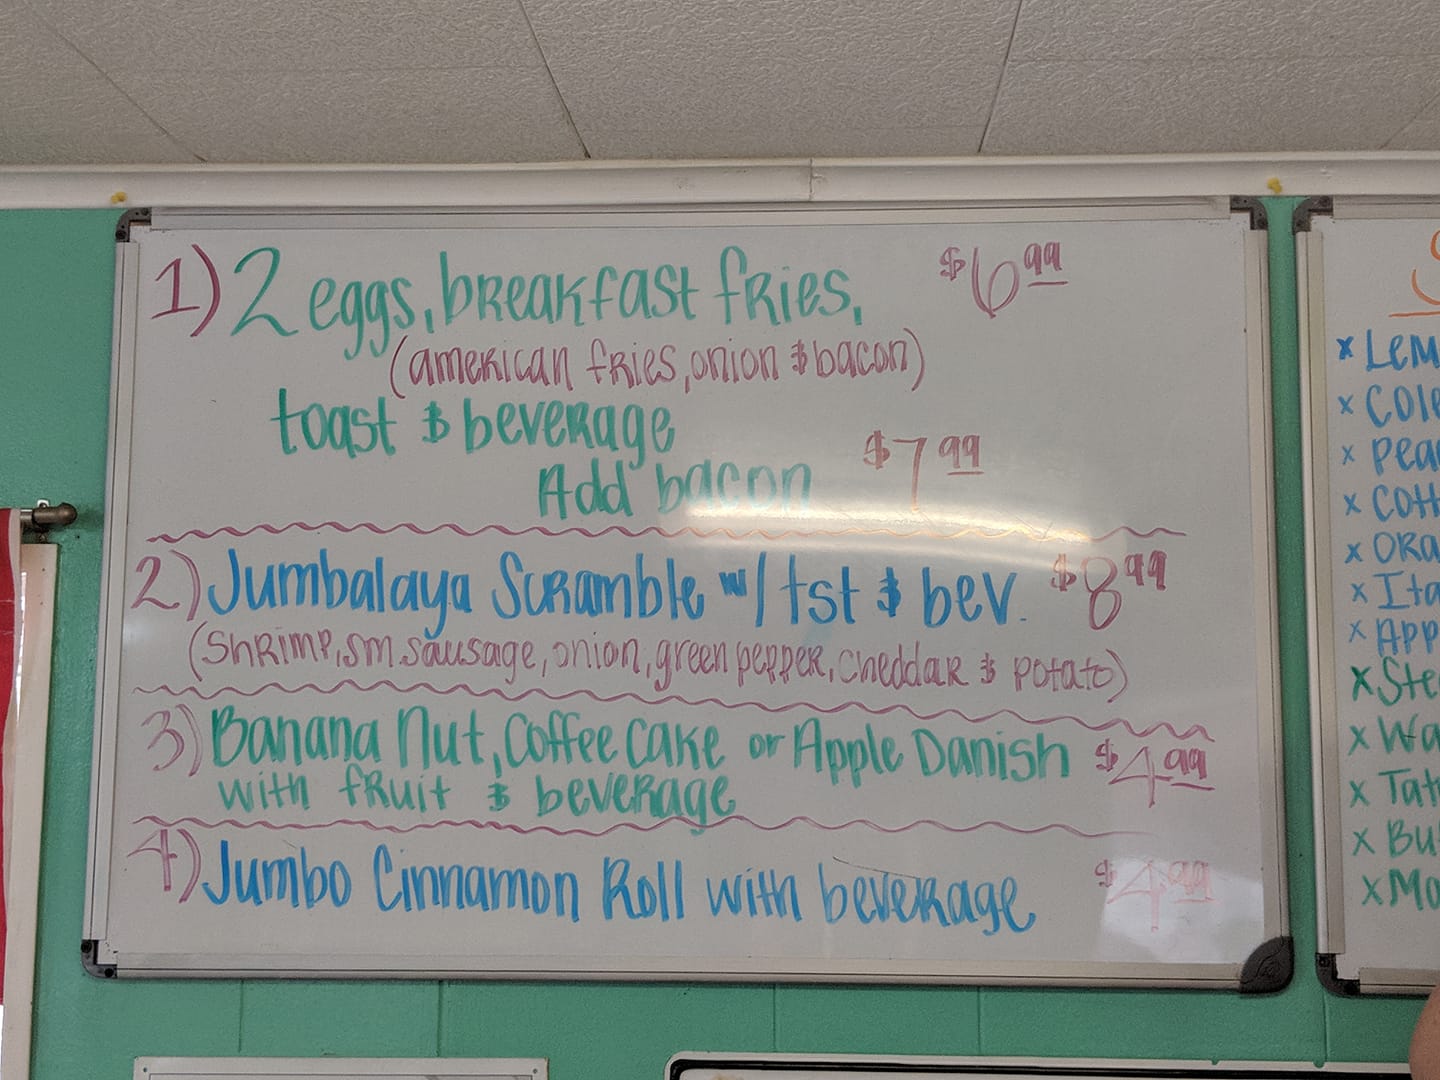 1) 2 eggs, breakfast fries, $6 99
(american fries, onion & bacon)
toast & beverage
Add bacon $7 99
2) Jumbalaya Scramble w/ tst & bev. $8 99
(shrimp, sm. sausage, onion, green pepper, cheddar & potato)
3) Banana Nut, Coffee Cake or Apple Danish $4 99
with fruit & beverage
4) Jumbo Cinnamon Roll with beverage $4 99
x Lem
x Cole
x pea
x Cott
x Ora
x Ita
x App
x Ste
x Wa
x Tat
x Bu
x Mo